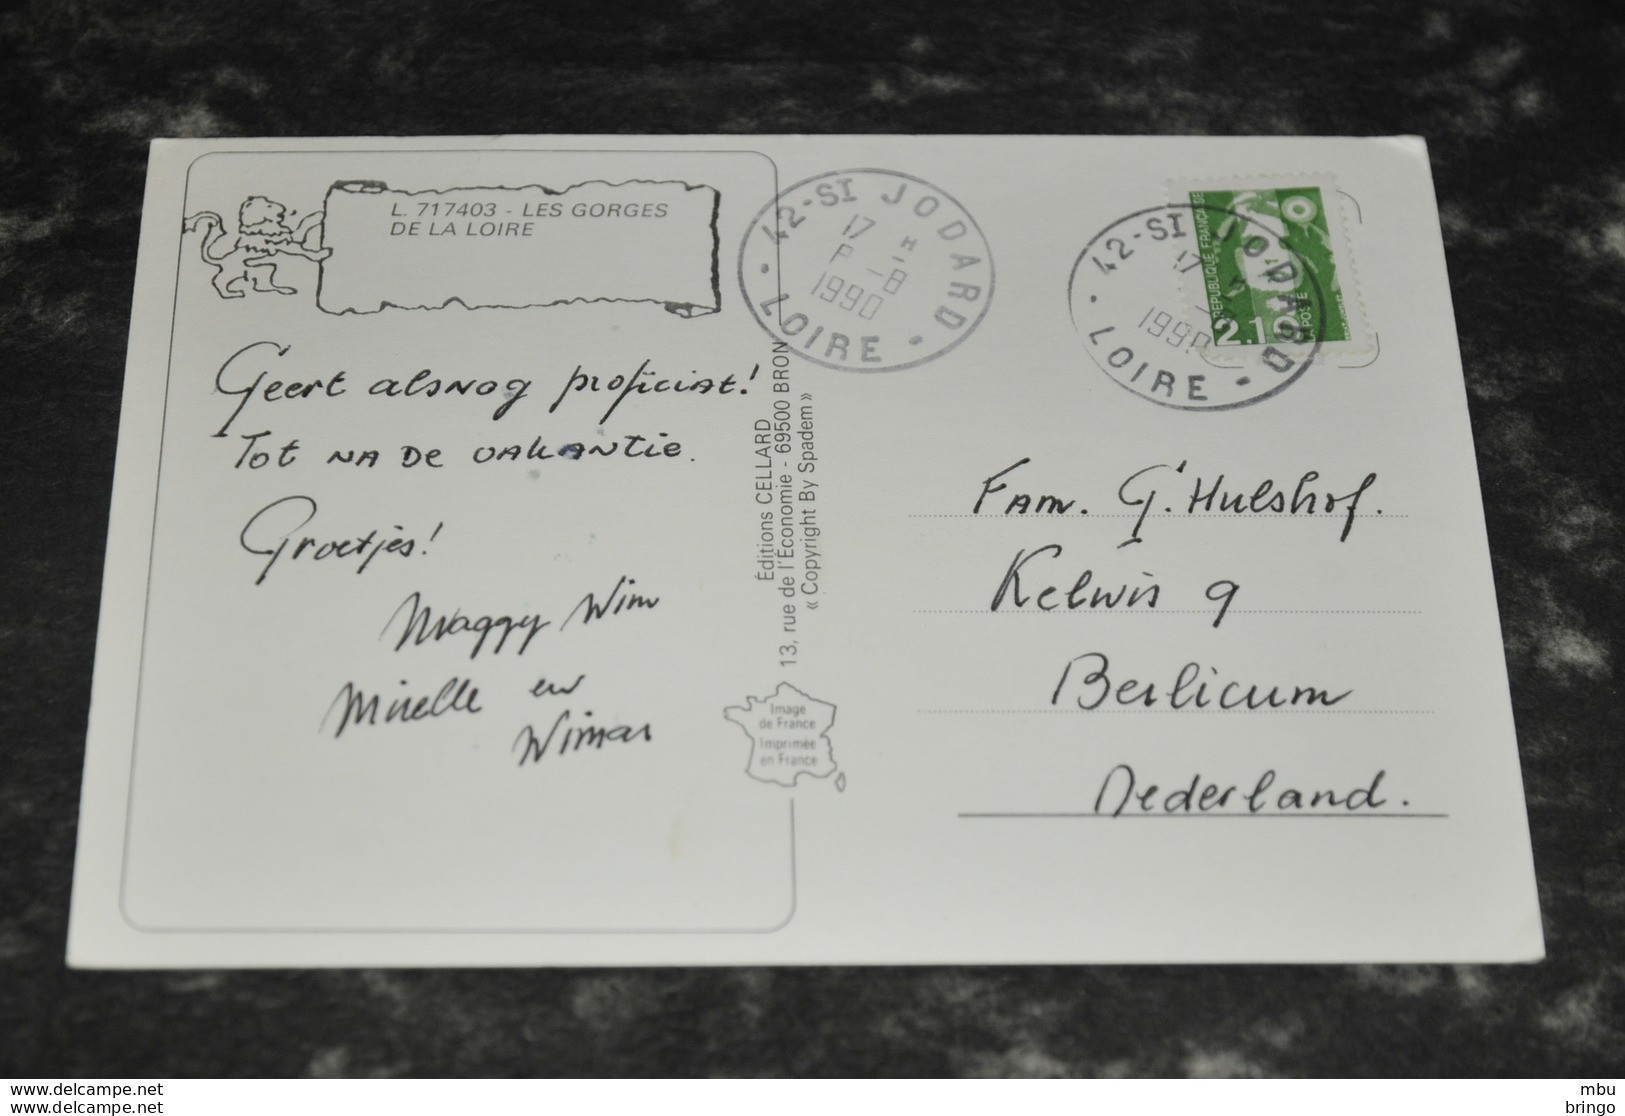 L. 717403 - LES GORGES
DE LA LOIRE
Geert alsnog proficiat!
Tot na de vakantie.
Groetjes!
Maggy Wim
Mirelle en
Wimar
Éditions CELLARD
13, rue de l'Économie - 69500 BRON
« Copyright By Spadem »
Image
de France
Imprimée
en France
42-ST JODARD
17 H
8
1990
LOIRE
42-ST JODARD
17
1990
LOIRE
RÉPUBLIQUE FRANÇAISE
2.10
LA POSTE
Fam. G. Hulshof.
Kelwis 9
Berlicum
Nederland.
www.delcampe.net
www.delcampe.net
mbu
bringo